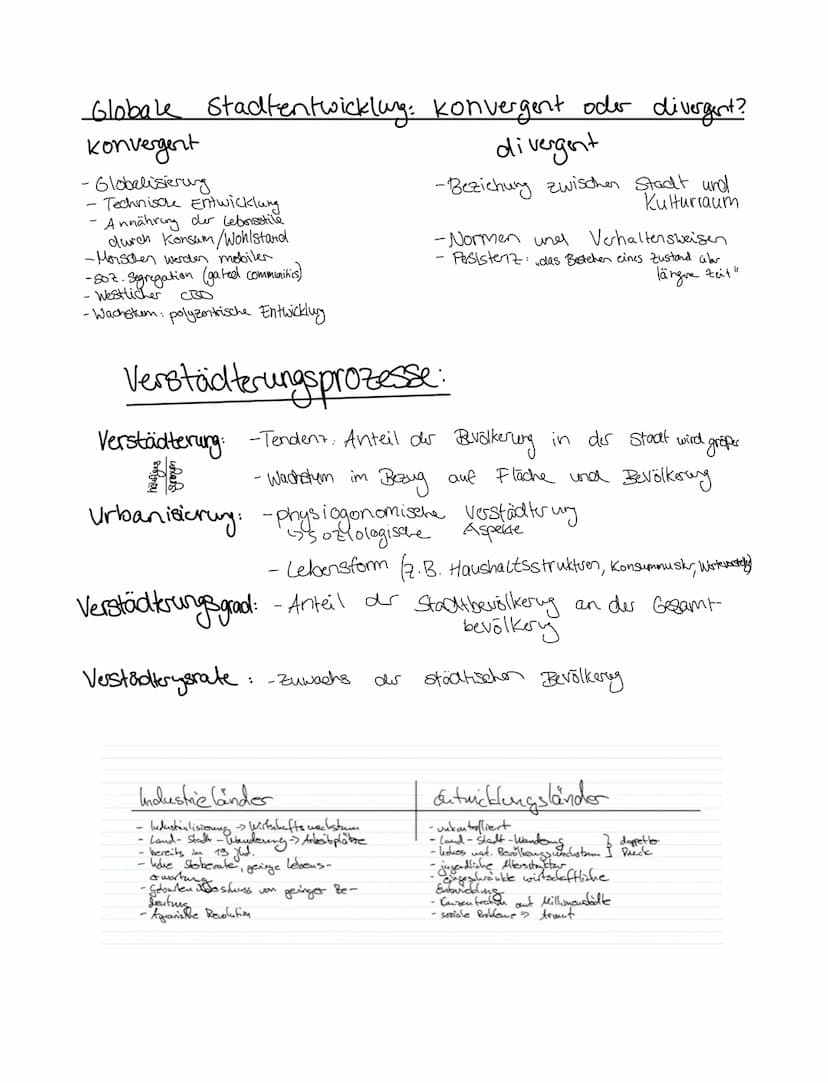 Globale Stadtentwicklung: konvergent oder divergent?
konvergent
- Globalisierung
- Technische Entwicklung
- Annährung der Lebensstile
durch Konsum/Wohlstand
- Menschen werden mobiler
- soz. Segregation (gated communitis)
- Westlicher CBD
- Wachstum: polyzentrische Entwicklung
divergent
- Beziehung zwischen Stadt und
Kulturraum
- Normen und Verhaltensweisen
- Persistenz: "das Bestehen eines Zustand über
längere Zeit"
Verstädterungsprozesse:
Verstädterung: - Tendenz: Anteil der Bevölkerung in der Stadt wird größer
- Wachstum im Bezug auf Fläche und Bevölkerung
häufig
synonym
Urbanisierung: - physiogonomische Verstädterung
↳ soziologische Aspekte
- Lebensform (z.B. Haushaltsstrukturen,
Verstädterungsgrad: - Anteil der Stadtbevölkerung an der Gesamt-
bevölkerung
Verstädterungsrate: - Zuwachs der städtischen Bevölkerung
Industrieländer
- Industrialisierung → Wirtschaftswachstum
- Land-Stadt-Wanderung → Arbeitsplätze
- bereits im 19 Jhd.
- hohe Sterberate, geringe Lebens-
erwartung
- Geburtenüberschuss von geringer Be-
deutung
- Agrarische Revolution
Entwicklungsländer
- unkontrolliert
- Land-Stadt-Wanderung
- hohes nat. Bevölkerungswachstum
} doppelter
Druck
- jugendliche Altersstruktur
- eingeschränkte wirtschaftliche
Entwicklung
- Konzentration auf Millionenstädte
- soziale Probleme ⇒ Armut